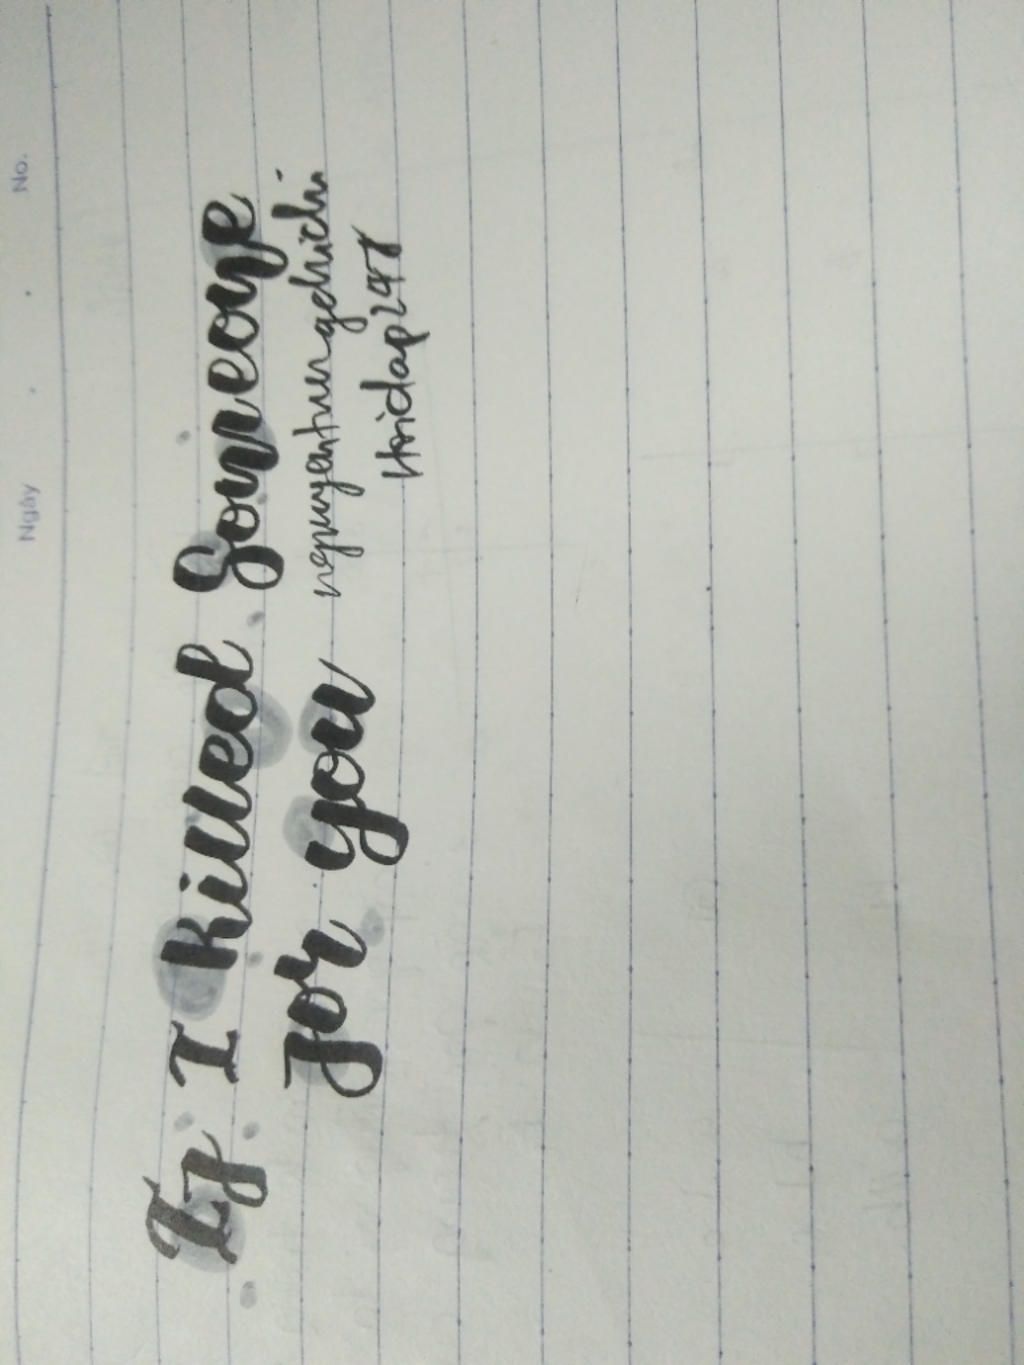 Ngày . . No.
If I killed Someone
For you
Hoidap247